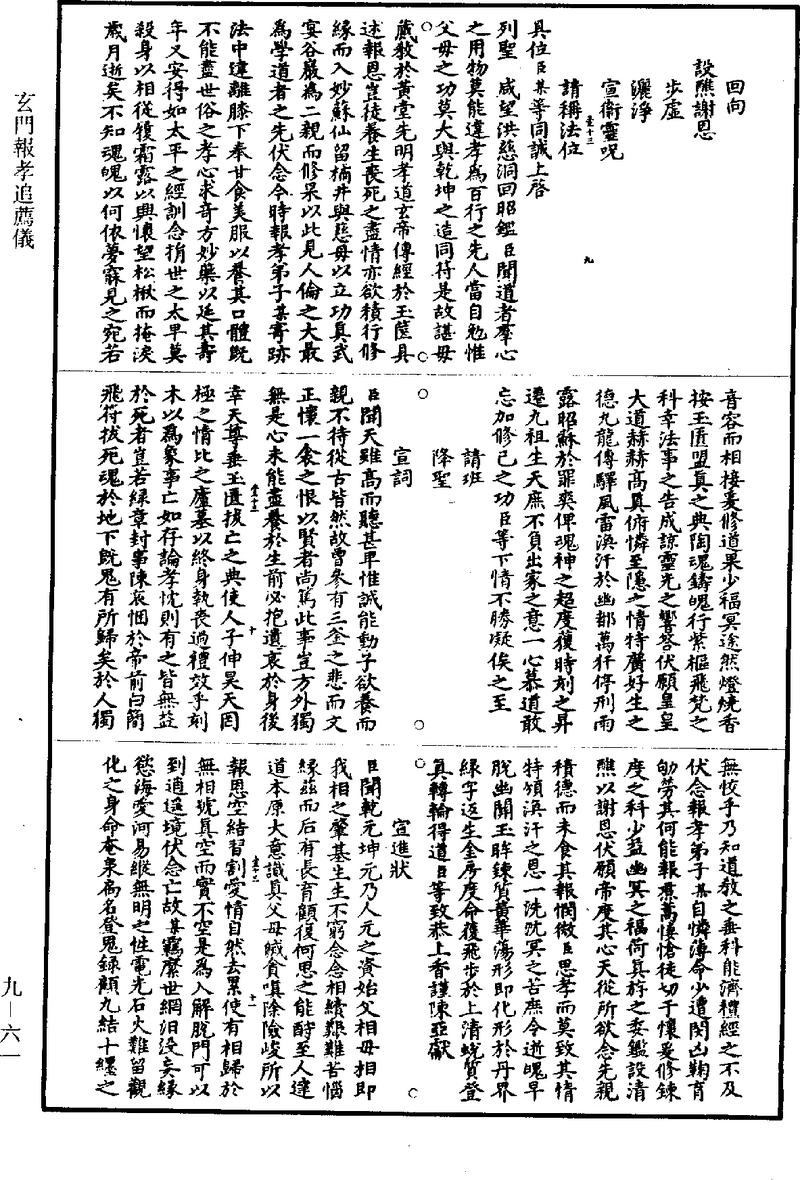 回向
設醮謝恩
步虛
灑淨
宣衞靈呪
請稱法位
具位臣某等同誠上啓
列聖　咸望洪慈洞回昭鑑臣聞道者羣心
之用物莫能違孝為百行之先人當自勉惟
父母之功莫大與乾坤之造同符是故諶母
藏教於黃堂先明孝道玄帝傳經於玉笥具
述報恩豈徒養生喪死之盡情亦欲積行修
緣而入妙蘇仙留橘井與慈母以立功真武
宴谷巖為二親而修果以此見人倫之大最
為學道者之先伏念今時報孝弟子某寄跡
法中違離膝下奉甘食美服以養其口體既
不能盡世俗之孝心求奇方妙藥以延其壽
年又安得如太平之經訓念捐世之太早莫
殺身以相從履霜露以興懷望松楸而掩淚
歲月逝矣不知魂魄以何依夢寐見之宛若
音容而相接爰修道果少福冥途然燈燒香
按玉匱盟真之典陶魂鑄魄行紫樞飛梵之
科幸法事之告成諒靈光之響答伏願皇皇
大道赫赫高真俯憐至隱之情特廣好生之
德九龍傳驛風雷渙汗於幽都萬犴停刑雨
露昭蘇於罪爽俾魂神之超度獲時刻之昇
遷九祖生天庶不負出家之意一心慕道敢
忘加修已之功臣等下情不勝凝俟之至
請班
降聖
宣詞
臣聞天雖高而聽甚卑惟誠能動子欲養而
親不待從古皆然故曾參有三釜之悲而文
正懷一衾之恨以賢者尚篤此事豈方外獨
無是心未能盡養於生前必抱遺哀於身後
幸天尊垂玉匱拔亡之典使人子伸昊天罔
極之情比之廬墓以終身執喪過禮效乎刻
木以為象事亡如存論孝忱則有之皆無益
於死者豈若綠章封事陳哀悃於帝前白簡
飛符拔死魂於地下既鬼有所歸矣於人獨
無恔乎乃知道教之垂科能濟禮經之不及
伏念報孝弟子某自憐薄命少遭閔凶鞠育
劬勞其何能報焄蒿悽愴徒切于懷爰修鍊
度之科少益幽冥之福荷真斿之委鑑設清
醮以謝恩伏願帝度其心天從所欲念先親
積德而未食其報憫微臣思孝而莫致其情
特頒渙汗之恩一洗沈冥之苦庶令逝魄早
脫幽關玉眸鍊質黃華蕩形即化形於丹界
綠字返生金房度命獲飛步於上清蛻質登
真轉輪得道臣等致恭上香謹陳亞獻
宣進狀
臣聞乾元坤元乃人元之資始父相母相即
我相之肇基生生不窮念念相續艱難苦惱
緣茲而后有長育顧復何思之能酧至人達
道本原大意識真父母緘貪嗔除險峻所以
報恩空結習割愛情自然去累使有相歸於
無相號真空而實不空是為入解脫門可以
到逍遥境伏念亡故某羈縻世網汨没妄緣
慾海愛河易縱無明之性電光石火難留觀
化之身命奄泉扃名登鬼錄顧九結十纏之
玄門報孝追薦儀
九－六一